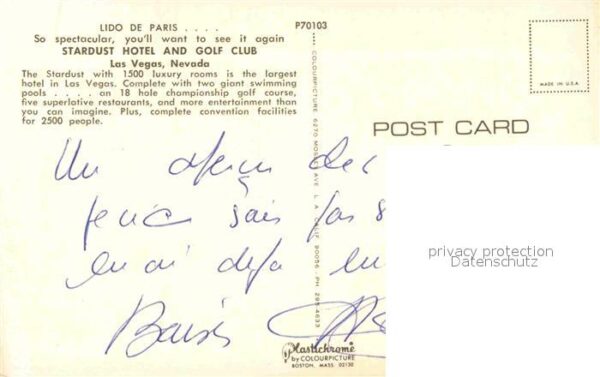 LIDO DE PARIS . . . .
So spectacular, you'll want to see it again
STARDUST HOTEL AND GOLF CLUB
Las Vegas, Nevada
The Stardust with 1500 luxury rooms is the largest
hotel in Las Vegas. Complete with two giant swimming
pools . . . . an 18 hole championship golf course,
five superlative restaurants, and more entertainment than
you can imagine. Plus, complete convention facilities
for 2500 people.
P70103
MADE IN U.S.A.
POST CARD
COLOURPICTURE 6270 MORSE AVE L. A. CALIF 90056 - PH - 295-4633
Un aperçu des
je n'ai sais pas
en ai déjà
Baisers
privacy protection
Datenschutz
Plastichrome
by COLOURPICTURE
BOSTON, MASS 02130